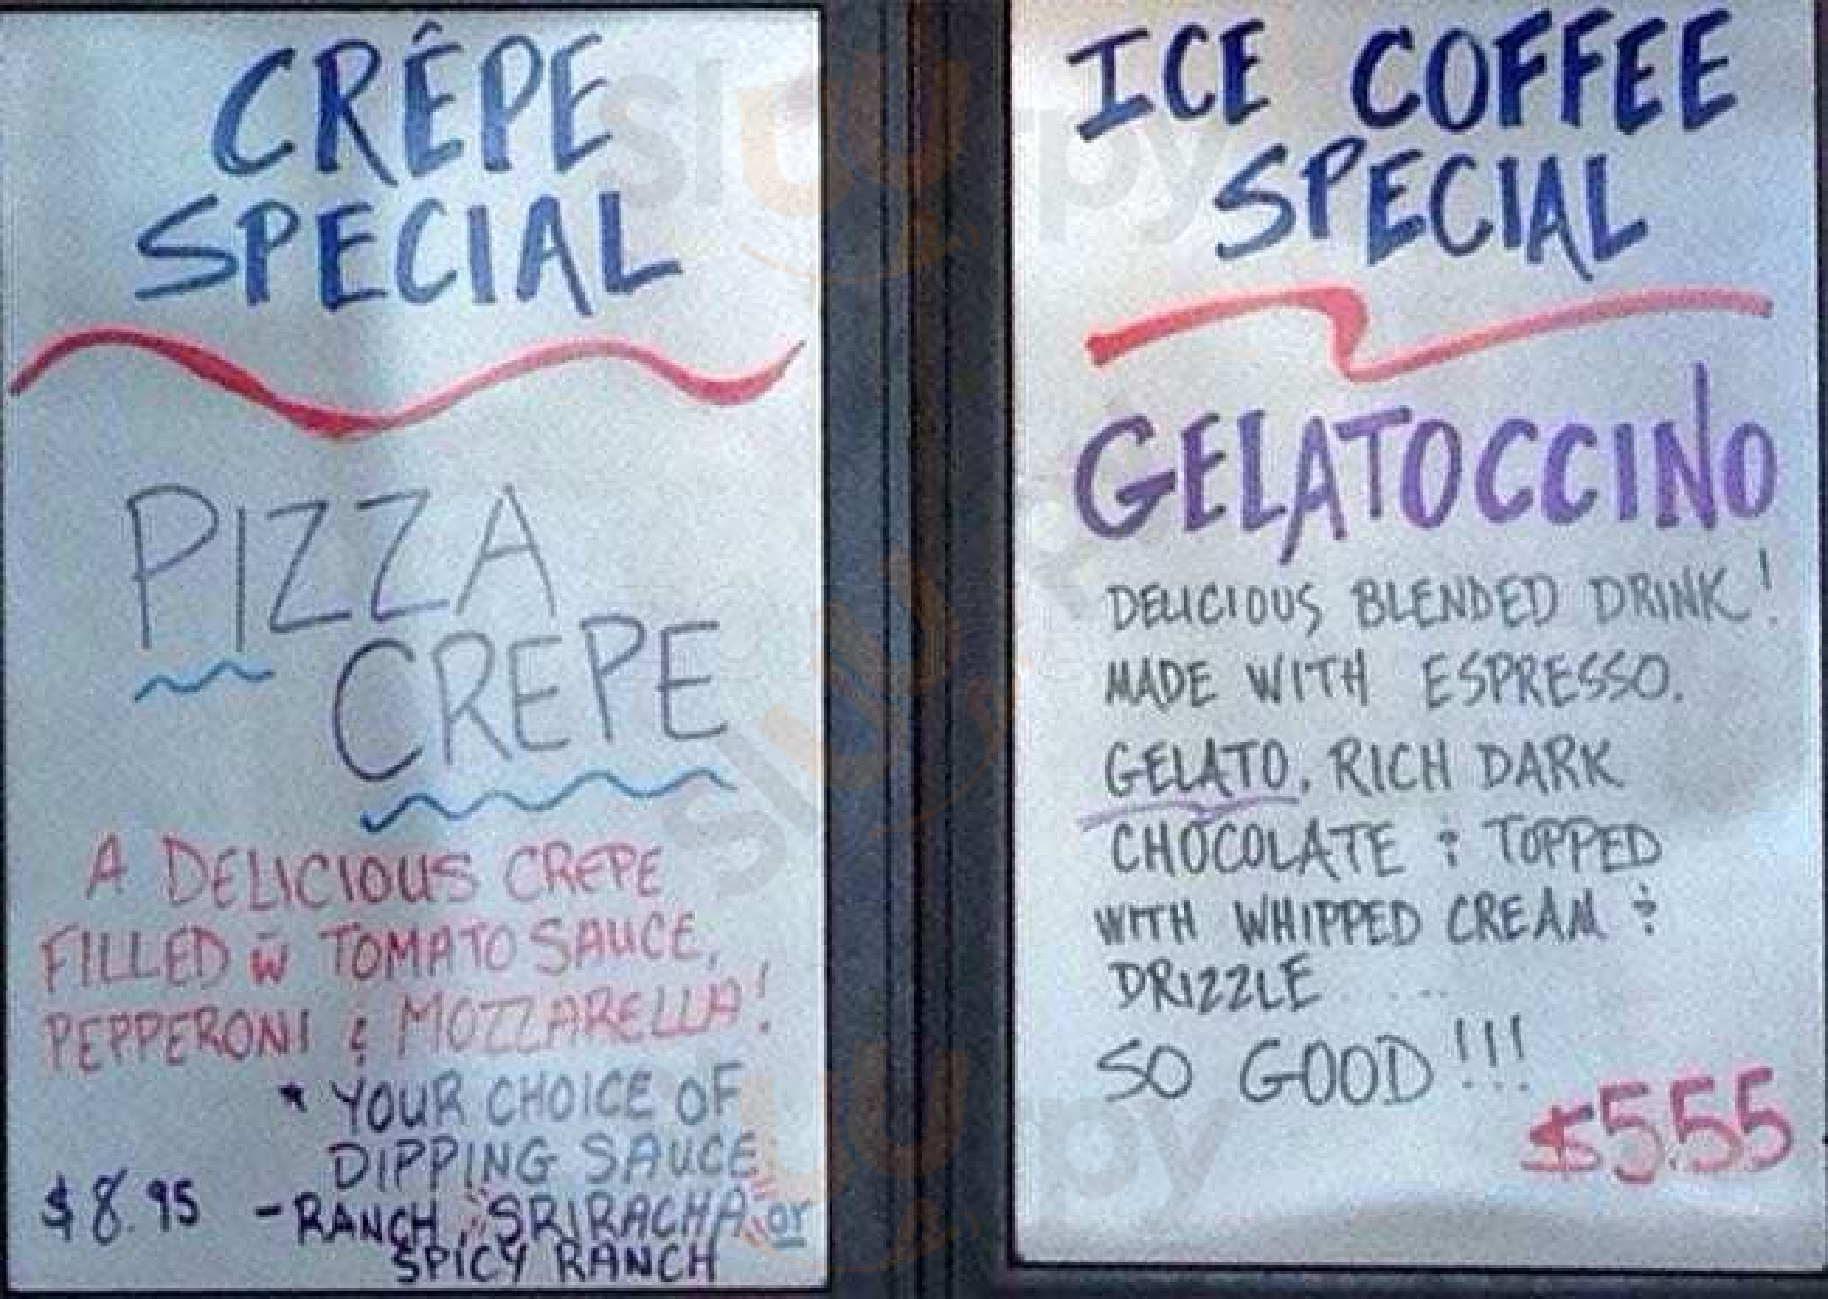 CRÊPE
SPECIAL
PIZZA
CREPE
A DELICIOUS CREPE
FILLED w̄ TOMATO SAUCE,
PEPPERONI & MOZZARELLA!
* YOUR CHOICE OF
DIPPING SAUCE
$8.95 - RANCH, SRIRACHA or
SPICY RANCH
ICE COFFEE
SPECIAL
GELATOCCINO
DELICIOUS BLENDED DRINK!
MADE WITH ESPRESSO.
GELATO, RICH DARK
CHOCOLATE & TOPPED
WITH WHIPPED CREAM &
DRIZZLE
SO GOOD!!!
$5.55
slurpy
slurpy
slurpy